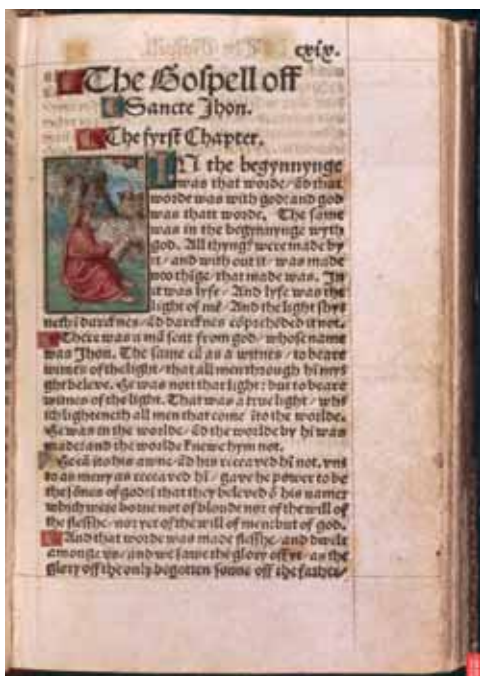 cxix.
The Gospell off
Sancte Jhon.
The fyrst Chapter.
IN the begynnynge
was that worde/ ād that
worde was with god: and god
was thatt worde. The same
was in the begynnynge wyth
god. All thyngs were made by
it/ and with out it/ was made
noo thīge/ that made was. In
it was lyfe/ And lyfe was the
light of mē/ And the light shy⸗
neth ī darcknes/ ād darcknes cōprehēded it not.
There was a mā sent from god/ whose name
was Jhon. The same cā as a witnes/ to beare
witnes of the light/ that all men through hī mys
ght beleve. He was nott that light: but to beare
witnes of the light. That was a true light/ whi
ch lighteneth all men that come īto the worlde.
He was in the worlde/ ād the worlde by hī was
made: and the worlde knewe hym not.
He cā īto his awne/ ād his receaved hī not. vnt
to as meny as receaved hī/ gave he power to be
the sōnes of god: ī that they beleved ō his name:
which were borne not of bloude nor of the will of
the flesshe/ nor yet of the will of men: but of god.
And that worde was made flesshe/ and dwelt
amonge vs/ and we sawe the glory off yt/ as the
glory off the only begotten sonne off the father/